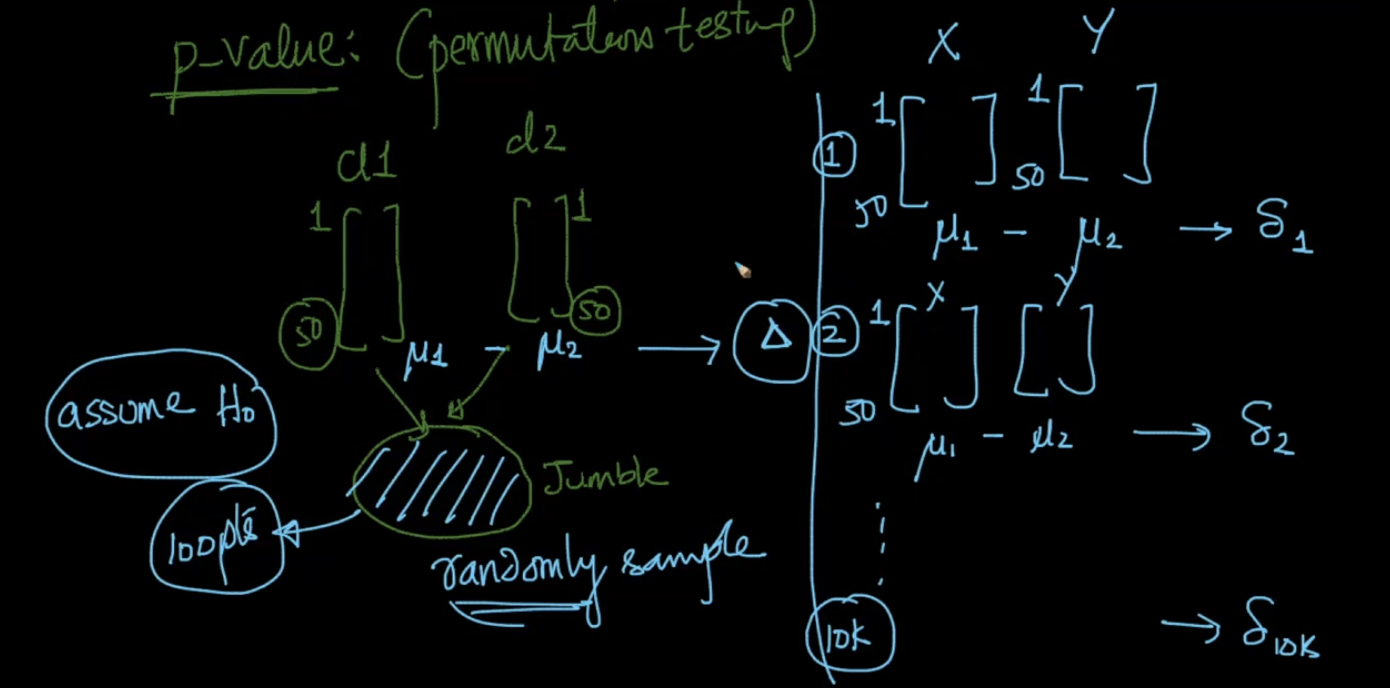 p-value: (permutation testing)
d1 d2
1 1
50 50
μ1 - μ2 → Δ
assume H0
Jumble
100pts
randomly sample
X Y
1 1
1
50 50
μ1 - μ2 → δ1
2
X Y
1
50
μ1 - μ2 → δ2
10K → δ10K